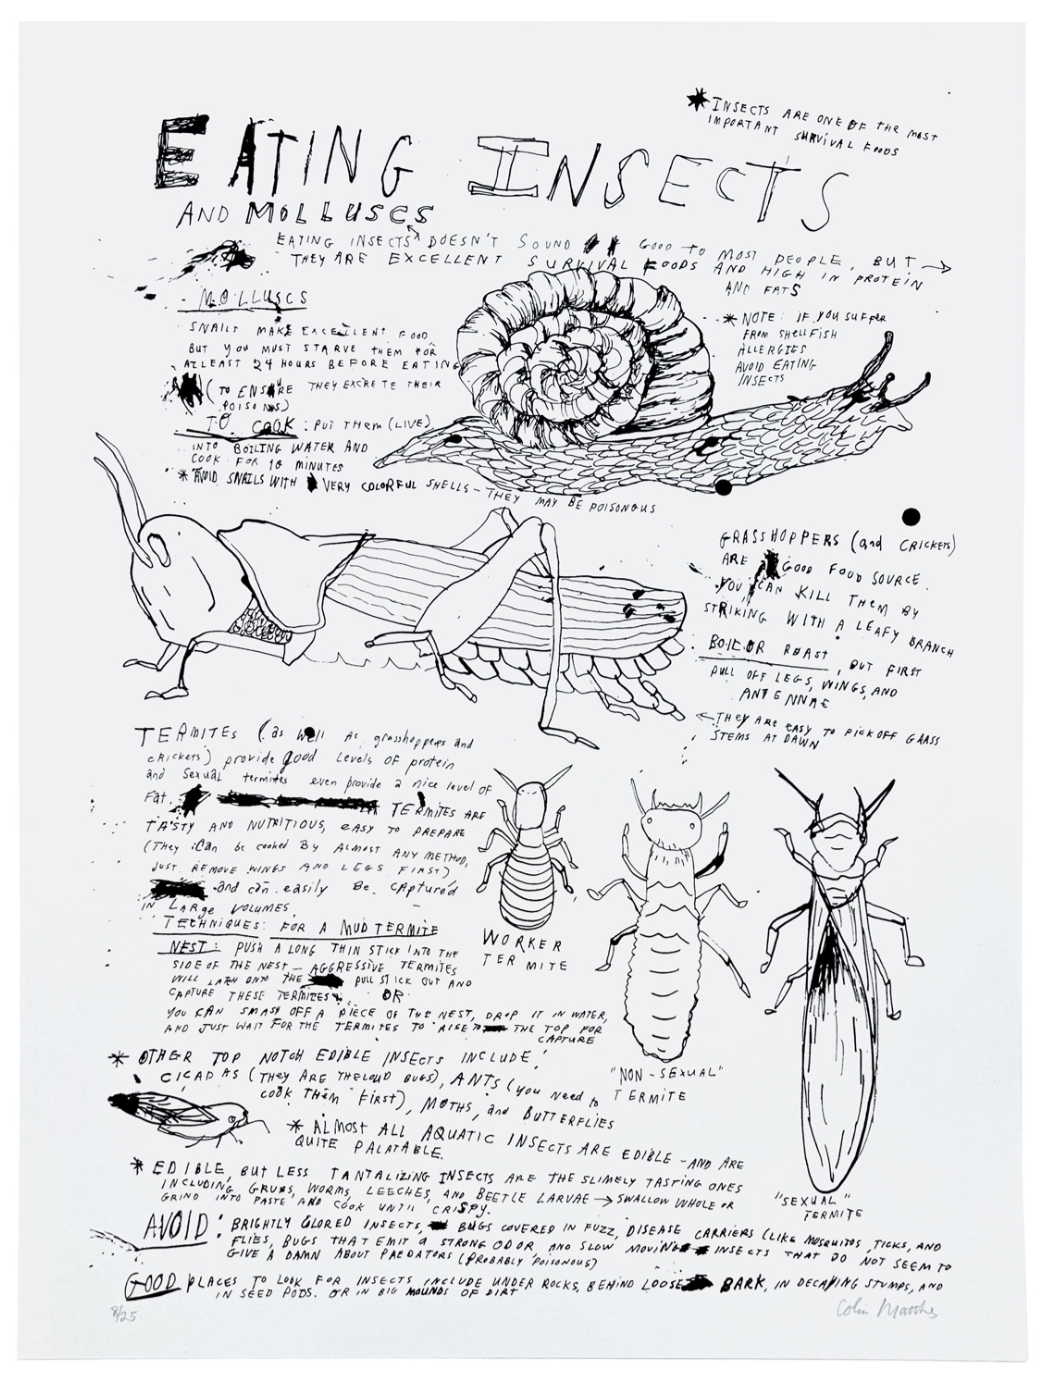 EATING INSECTS
AND MOLLUSCS
* INSECTS ARE ONE OF THE MOST
IMPORTANT SURVIVAL FOODS
EATING INSECTS DOESN'T SOUND GOOD TO MOST PEOPLE, BUT →
THEY ARE EXCELLENT SURVIVAL FOODS AND HIGH IN PROTEIN
AND FATS
- MOLLUSCS
SNAILS MAKE EXCELLENT FOOD
BUT YOU MUST STARVE THEM FOR
ATLEAST 24 HOURS BEFORE EATING
(TO ENSURE THEY EXCRETE THEIR
POISONS)
TO COOK: PUT THEM (LIVE)
INTO BOILING WATER AND
COOK FOR 10 MINUTES
* AVOID SNAILS WITH VERY COLORFUL SHELLS - THEY MAY BE POISONOUS
* NOTE: IF YOU SUFFER
FROM SHELLFISH
ALLERGIES
AVOID EATING
INSECTS
GRASSHOPPERS (and CRICKETS)
ARE GOOD FOOD SOURCE.
YOU CAN KILL THEM BY
STRIKING WITH A LEAFY BRANCH
BOIL OR ROAST, BUT FIRST
PULL OFF LEGS, WINGS, AND
ANTENNAE
← THEY ARE EASY TO PICK OFF GRASS
STEMS AT DAWN
TERMITES (as well As grasshoppers and
crickets) provide good levels of protein
and sexual termites even provide a nice level of
Fat. TERMITES ARE
TASTY AND NUTRITIOUS, EASY TO PREPARE
(They can be cooked By ALMOST ANY METHOD,
JUST REMOVE WINGS AND LEGS FIRST)
and can easily Be CAPtured
IN LARge VOLUMES.
TECHNIQUES: FOR A MUD TERMITE
NEST: PUSH A LONG THIN STICK INTO THE
SIDE OF THE NEST - AGGRESSIVE TERMITES
WILL LATCH ONTO THE PULL STICK OUT AND
CAPTURE THESE TERMITES. OR
YOU CAN SMASH OFF A PIECE OF THE NEST, DROP IT IN WATER,
AND JUST WAIT FOR THE TERMITES TO RISE TO THE TOP FOR
CAPTURE
WORKER
TERMITE
"NON-SEXUAL"
TERMITE
"SEXUAL"
TERMITE
* OTHER TOP NOTCH EDIBLE INSECTS INCLUDE:
CICADAS (THEY ARE THE LOUD BUGS), ANTS (you Need to
cook THEM FIRST), MOTHS, and BUTTERFLIES
* ALMOST ALL AQUATIC INSECTS ARE EDIBLE - AND ARE
QUITE PALATABLE.
* EDIBLE, BUT LESS TANTALIZING INSECTS ARE THE SLIMELY TASTING ONES
INCLUDING GRUBS, WORMS, LEECHES, AND BEETLE LARVAE → SWALLOW WHOLE OR
GRIND INTO PASTE AND COOK UNTIL CRISPY.
AVOID: BRIGHTLY COLORED INSECTS, BUGS COVERED IN FUZZ, DISEASE CARRIERS (LIKE MOSQUITOS, TICKS, AND
FLIES, BUGS THAT EMIT A STRONG ODOR AND SLOW MOVING INSECTS THAT DO NOT SEEM TO
GIVE A DAMN ABOUT PREDATORS (PROBABLY POISONOUS)
GOOD PLACES TO LOOK FOR INSECTS INCLUDE UNDER ROCKS, BEHIND LOOSE BARK, IN DECAYING STUMPS, AND
IN SEED PODS. OR IN BIG MOUNDS OF DIRT
8/25
Colin Matthes